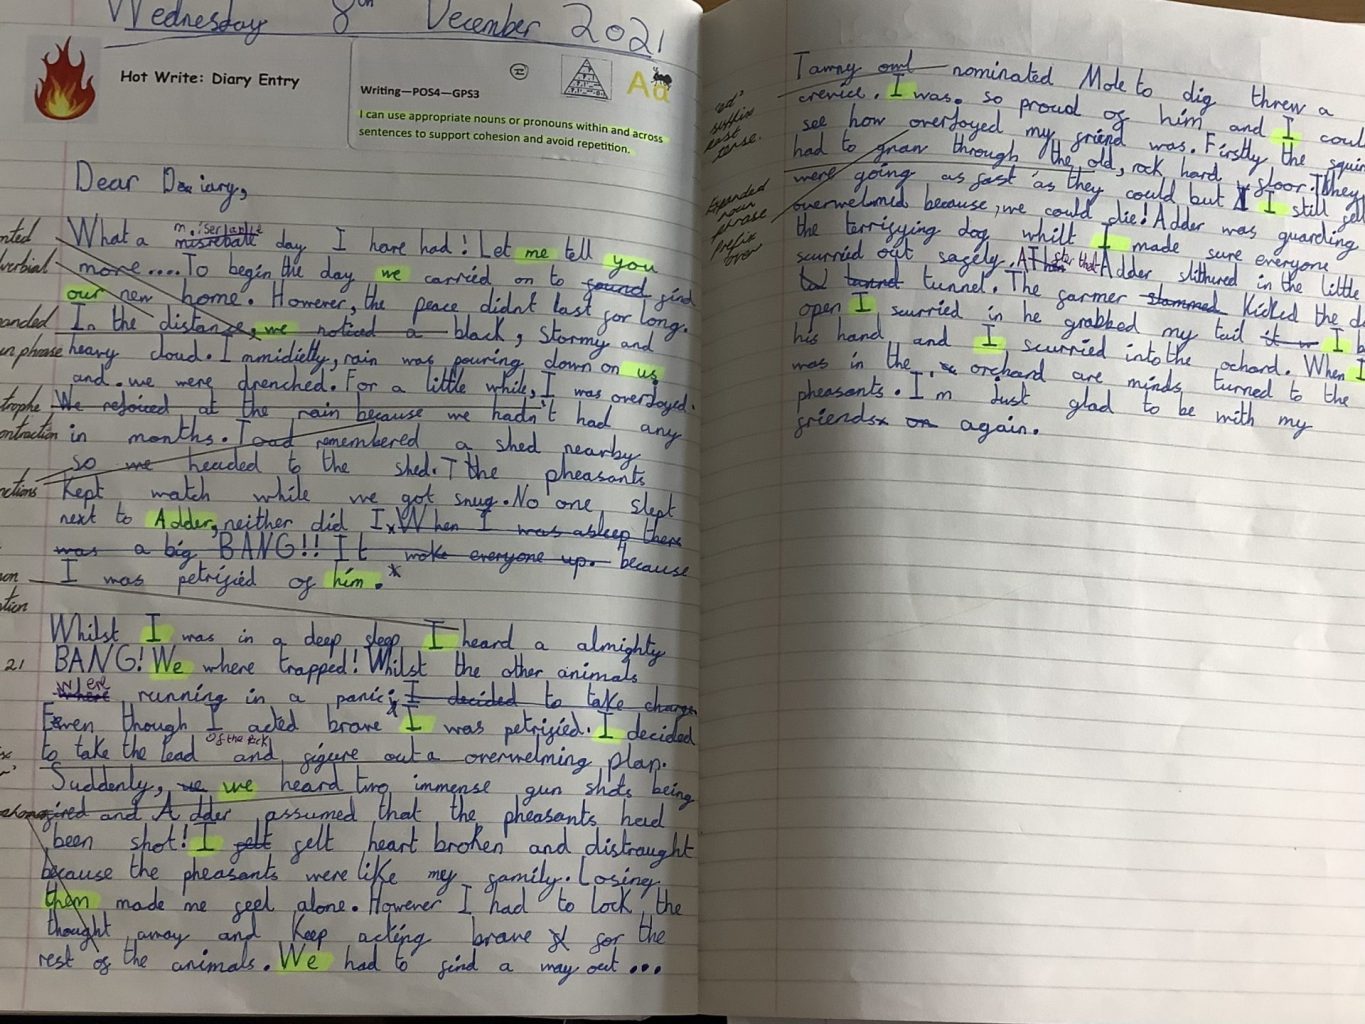 Wednesday 8th December 2021
Hot Write: Diary Entry
Writing—POS4—GPS3
Aa
I can use appropriate nouns or pronouns within and across
sentences to support cohesion and avoid repetition.
Dear Diary,
What a miserable day I have had! Let me tell you
more....To begin the day we carried on to found find
our new home. However, the peace didnt last for long.
In the distance, we noticed a black, stormy and
heavy cloud. Immidietly, rain was pouring down on us
and we were drenched. For a little while, I was overjoyed.
We rejoiced at the rain because we hadn't had any
in months. Toad remembered a shed nearby
so we headed to the shed. The pheasants
kept watch while we got snug. No one slept
next to Adder, neither did I. When I was asleep there
was a big BANG!! It woke everyone up. because
I was petrified of him.
Whilst I was in a deep sleep I heard a almighty
BANG! We where trapped! Whilst the other animals
where were running in a panic, I decided to take charge
Even though I acted brave I was petrified. I decided
to take the lead of the pack and figure out a overwelming plan.
Suddenly, we we heard two immense gun shots being
fired and Adder assumed that the pheasants had
been shot! I felt felt heart broken and distraught
because the pheasants were like my family. Losing
them made me feel alone. However I had to lock the
thought away and keep acting brave for the
rest of the animals. We had to find a way out...
Tawny owl nominated Mole to dig threw a
crevice. I was so proud of him and I coul
see how overjoyed my friend was. Firstly the squir
had to gnaw through the old, rock hard floor. They
were going as fast as they could but I I still fel
overwelmed because, we could die! Adder was guarding
the terrifying dog whilt I made sure everyone
scurried out safely. After that Adder slithered in the little
tunnel. The farmer slammed kicked the d
open I scurried in he grabbed my tail I b
his hand and I scurried into the ochard. When I
was in the orchard are minds turned to the
pheasants. I'm Just glad to be with my
friends again.
'ed'
suffix
past
tense.
Expanded
noun
phrase
Prefix
over